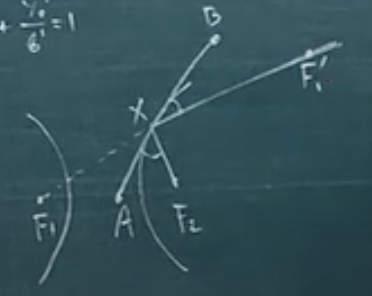 + y₀²/b² = 1
B
F₁'
X
F₁
A
F₂